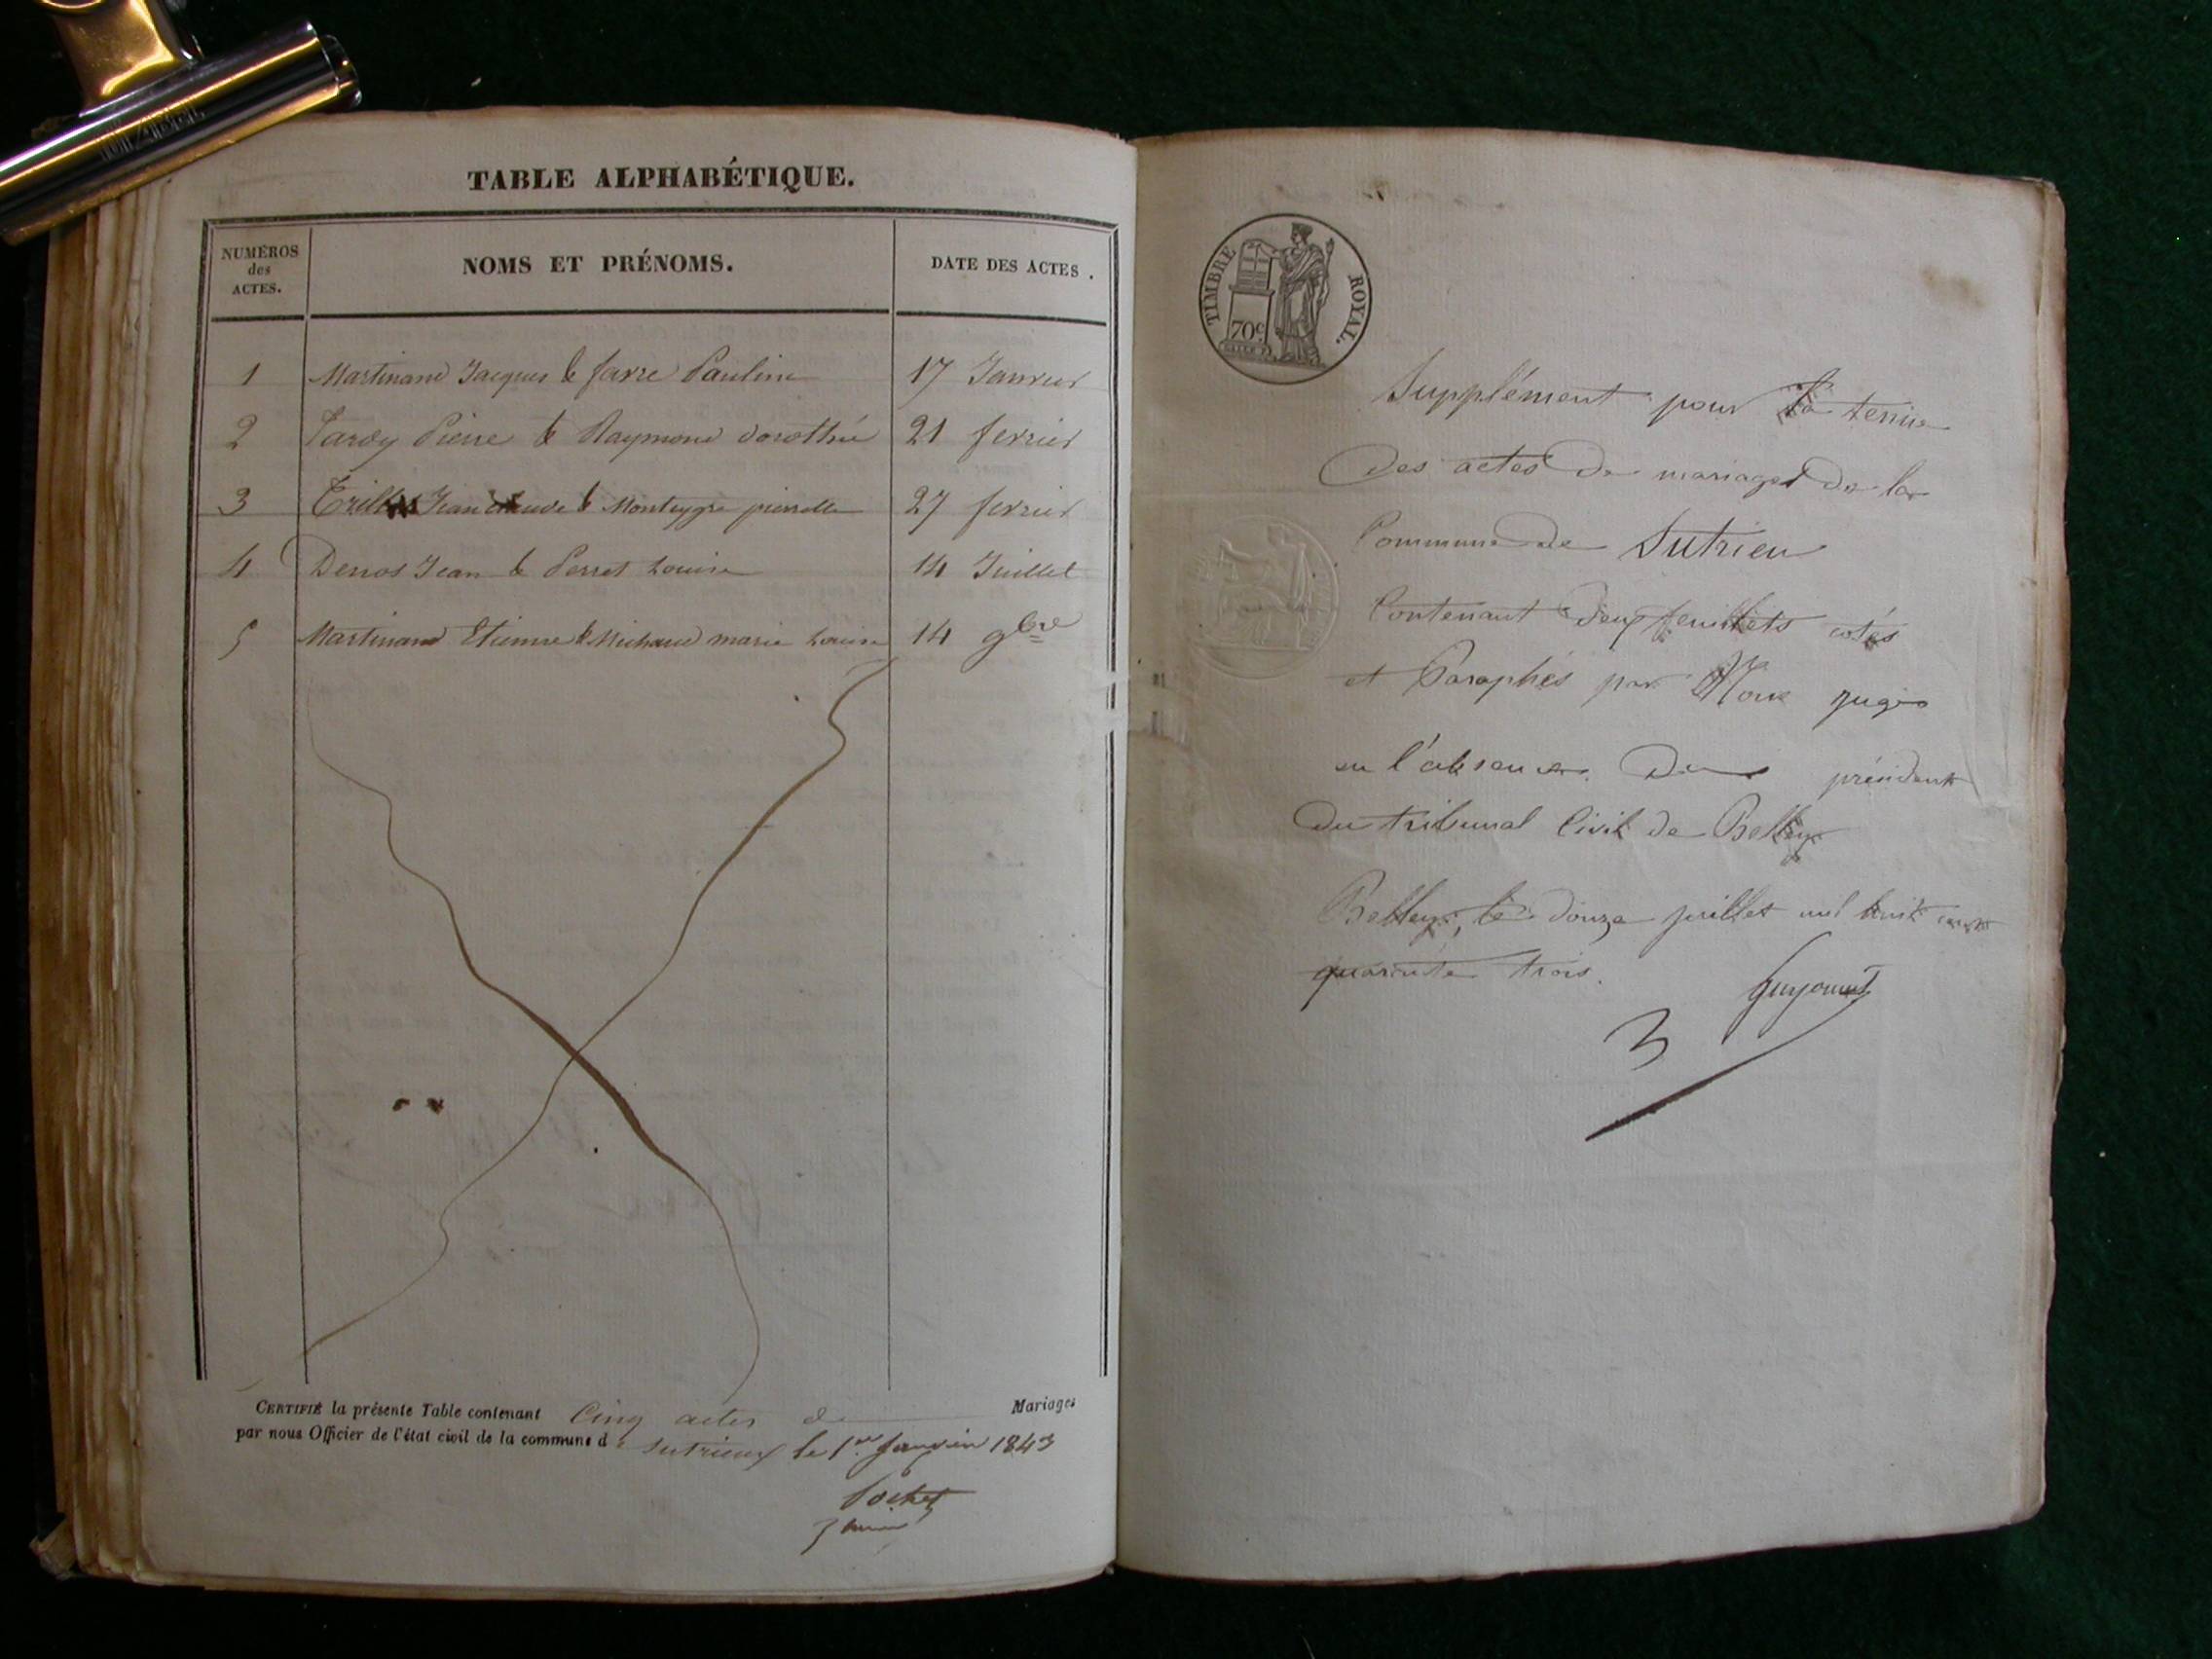 TABLE ALPHABÉTIQUE.
NUMÉROS des ACTES.
NOMS ET PRÉNOMS.
DATE DES ACTES.
1 Martinand Jacques & favre Pauline 17 Janvier
2 Tardy Pierre & Raymond dorothée 21 fevrier
3 Jean Claude & pierrette 27 fevrier
4 Jean & Perret Louise 14 Juillet
5 Martinand Etienne & Michaud marie Louise 14 9bre
CERTIFIÉ la présente Table contenant Cinq actes de Mariages
par nous Officier de l'état civil de la commune de Sutrieux le 1er Janvier 1843
TIMBRE ROYAL.
70c
Supplément pour la tenue
des actes de mariages de la
Commune de Sutrieu
Contenant deux feuillets cotés
et Paraphés par Nous juge
en l'absence du président
du tribunal Civil de Belley
Belley, le douze juillet mil huit cent
quarante trois.